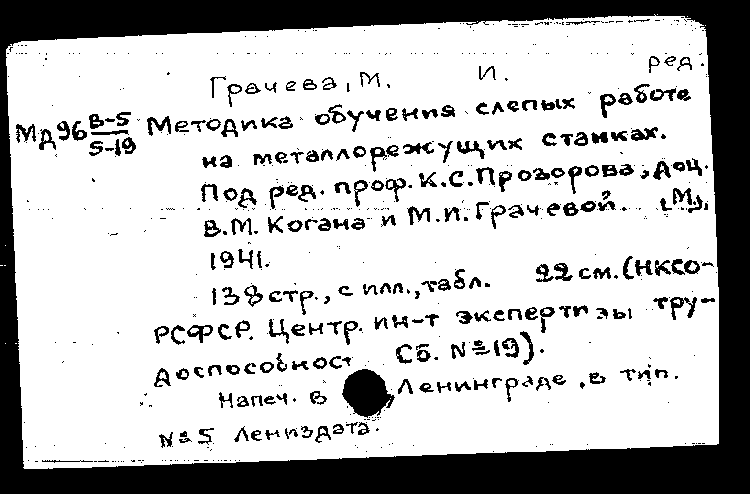 Грачева, М. И. ред.
Мд96 В-5/5-19 Методика обучения слепых работе
на металлорежущих станках.
Под ред. проф. К.С. Прозорова, доц.
В.М. Когана и М.И. Грачевой. [М],
1941.
138 стр., с илл., табл. 22 см. (НКСО-
РСФСР. Центр. ин-т экспертизы тру-
доспособност Сб. №19).
Напеч. в Ленинграде, в тип.
№5 Лениздата.